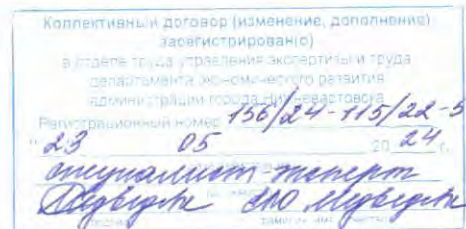 Коллективный договор (изменение, дополнение)
зарегистрирован(о)
в отделе труда управления экспертизы и труда
департамента экономического развития
администрации города Нижневартовска
Регистрационный номер 156/24-115/22-5
"23 05 2024 г.
специалист-эксперт
Медведек